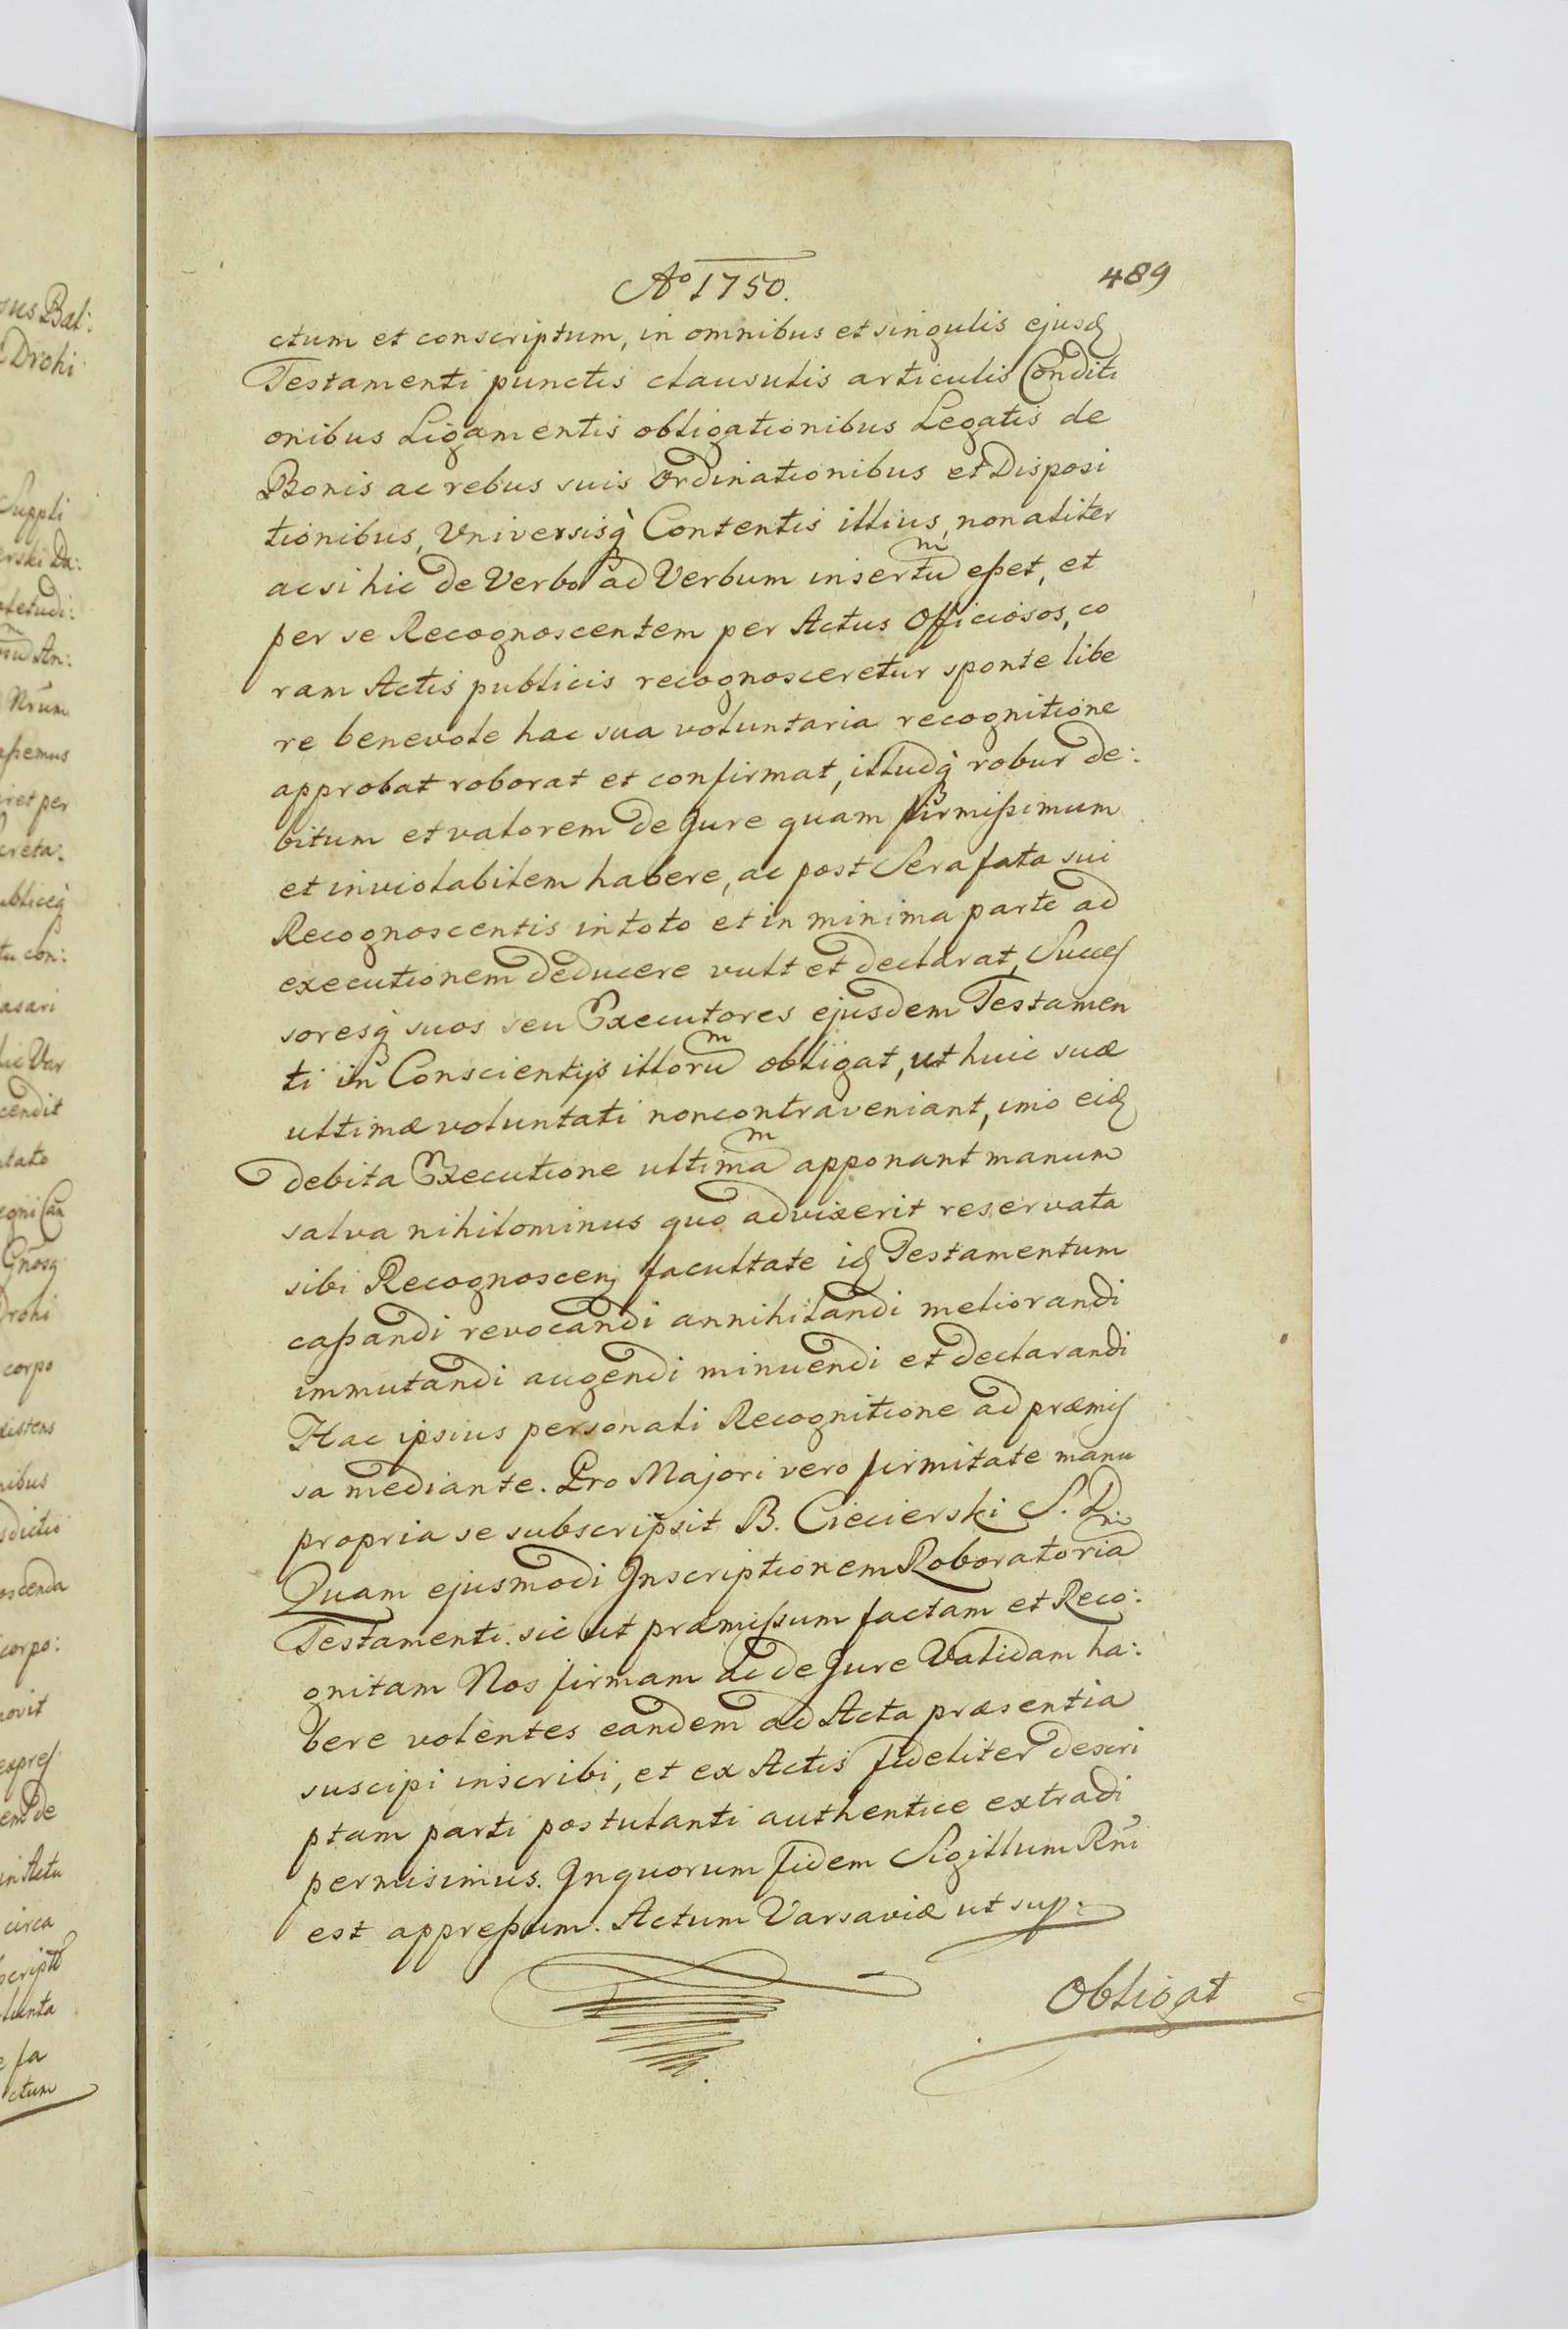 Aº 1750.
489
ctum et conscriptum, in omnibus et singulis ejusd
Testamenti punctis clausulis articulis Conditi
onibus Ligamentis obligationibus Legatis de
Bonis ac rebus suis Ordinationibus et Disposi
tionibus, Universisq̀ Contentis illius, non aliter
ac si hic de Verbo ad Verbum insertum eßet, et
per se Recognoscentem per Actus Officiosos, co
ram Actis publicis recognosceretur sponte libe
re benevole hac sua voluntaria recognitione
approbat roborat et confirmat, illudq̀ robur de:
bitum et valorem de Jure quam firmißimum
et inviolabilem habere, ac post Sera fata sui
Recognoscentis in toto et in minima parte ad
executionem deducere vult et declarat, Succeſ
soresq̀ suos seu Executores ejusdem Testamen
ti in Conscientijs illorum obligat, ut huic suæ
ultimæ voluntati non contraveniant, imo eid
debita Executione ultimam apponant manum
salva nihilominus quo advixerit reservata
sibi Recognoscen facultate id Testamentum
caßandi revocandi annihilandi meliorandi
immutandi augendi minuendi et declarandi
Hac ipsius personali Recognitione ad præmiſ
sa mediante. Pro Majori vero firmitate manu
propria se subscripsit B. Ciecierski S. D.
Quam ejusmodi Inscriptionem Roboratoriam
Testamenti sic ut præmißum factam et Reco:
gnitam Nos firmam ac de Jure Validam ha:
bere volentes eandem ad Acta præsentia
suscipi inscribi, et ex Actis fideliter descri
ptam parti postulanti authentice extradi
permisimus. In quorum fidem Sigillum Rñi
est appreßum. Actum Varsaviæ ut sup:
Obligat
sus Bal:
Drohi
Suppli
erski Da:
Nrum
ßemus
iret per
creta:
ublicèq̀
tu con:
asari
hic Var
cendit
tato
egni Can
Drohi
corpo
xistens
nibus
sdictio
oscenda
corpo:
novit
expreſ
em de
in Actu
circa
lunta
e fa
ctum